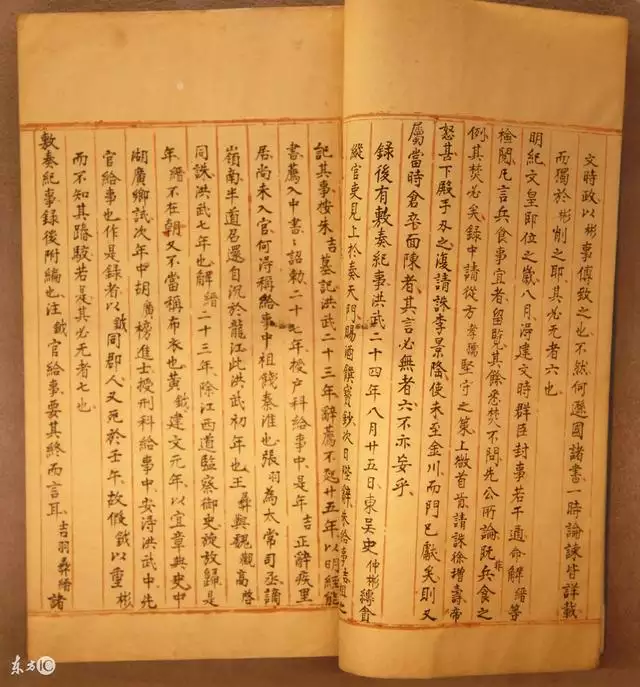 文時政以彬事傅致之也不然何遜國諸書一時論諫皆詳載
而獨於彬削之耶其必無者六也
明紀文皇即位之歲八月得建文時群臣封事若干通命解縉等
檢閱凡言兵食事宜者留覽其餘悉焚不問先公所論既非兵食之
例其焚必矣錄中請從方孝孺堅守之策上徵首肯請誅徐增壽帝
怒甚下殿手刃之復請誅李景隆使未至金川而門已獻矣則又
屬當時倉卒面陳者其言必無者六不亦妄乎
錄後有敷奏紀事洪武二十四年八月廿五日東吳史仲彬縛貪
縱官吏見上於奉天門賜酒饌寶鈔次日陛辭朱給事吉祖之
記其事按朱吉墓記洪武二十三年辭薦不起廿五年以明經能
書薦入中書詔勅二十七年授户科給事中是年吉正辭疾里
居尚未入官何得稱給事中祖餞秦淮也張羽為太常司丞謫
嶺南半道召還自沉於龍江此洪武初年也王彝與魏觀高啓
同誅洪武七年也解縉二十三年除江西道監察御史旋放歸是
年縉不在朝又不當稱布衣也黃鉞建文元年以宜章典史中
湖廣鄉試次年中胡廣榜進士授刑科給事中安得洪武中先
官給事也作是錄者以鉞同郡人又死於壬午故假鉞以重彬
而不知其踳駁若是其必無者七也
敷奏紀事錄後附編也注鉞官給事要其終而言耳吉羽彝縉諸
东方IC